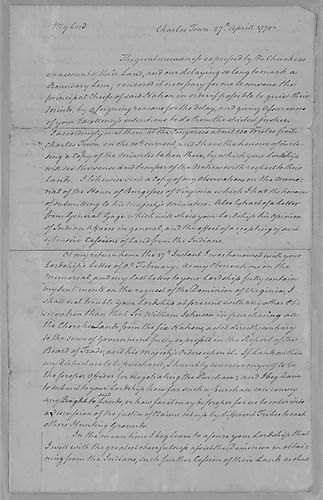 My Lord Charles Town 27th April 1770
The great uneasiness expressed by the Cherokees
on account of their Land, and our delaying so long to mark a
Boundary Line, rendered it necessary for me to convene the
principal Chiefs of said Nation in order if possible to quiet their
minds, by assigning reasons for the delay, and giving Assurances
of your Excellency's intentions to do them the strictest Justice.
I accordingly met them at the Congarees about 120 Miles from
Charles Town on the 10th current, and I have the honour of inclo-
sing a Copy of the Minutes taken there, by which your Lordship
will see the sense and temper of the Nation with respect to their
Lands. I likewise send a Copy of my observations on the Memo-
rial of the House of Burgesses of Virginia which I had the honour
of submitting to his Majesty's ministers. Also Extract of a Letter
from General Gage which will shew your Lordship his opinion
of Indian Affairs in general, and the effect of accepting of such
extensive Cessions of Land from the Indians.
At my return home the 17th Instant I was honoured with your
Lordship's Letter of February. As my Observations on the
Memorial, and my last Letter to your Lordship fully contain
my Sentiments on the request of the Dominion of Virginia, I
shall not trouble your Lordship at present with any other Ob-
servation than that Sir William Johnson in purchasing all
the Cherokee Lands from the Six Nations, acted directly contrary
to the sense of Government fully expressed in the Report of the
Board of Trade, and his Majesty's Orders upon it. If Lands within
my district are to be purchased, I humbly conceive myself to be
the proper Officer for negotiating the Purchase; and I beg leave
to submit to your Lordship how far such a purchase can convey
any Right to said Lands, or how far it may be proper for us to enter into
a Discussion of the justice of Claims set up by different Tribes to each
others Hunting grounds.
In the mean time I beg leave to assure your Lordship that
I will with the greatest chearfulness assist the Dominion in obtai-
ning from the Indians, such further Cession of their Lands as shall